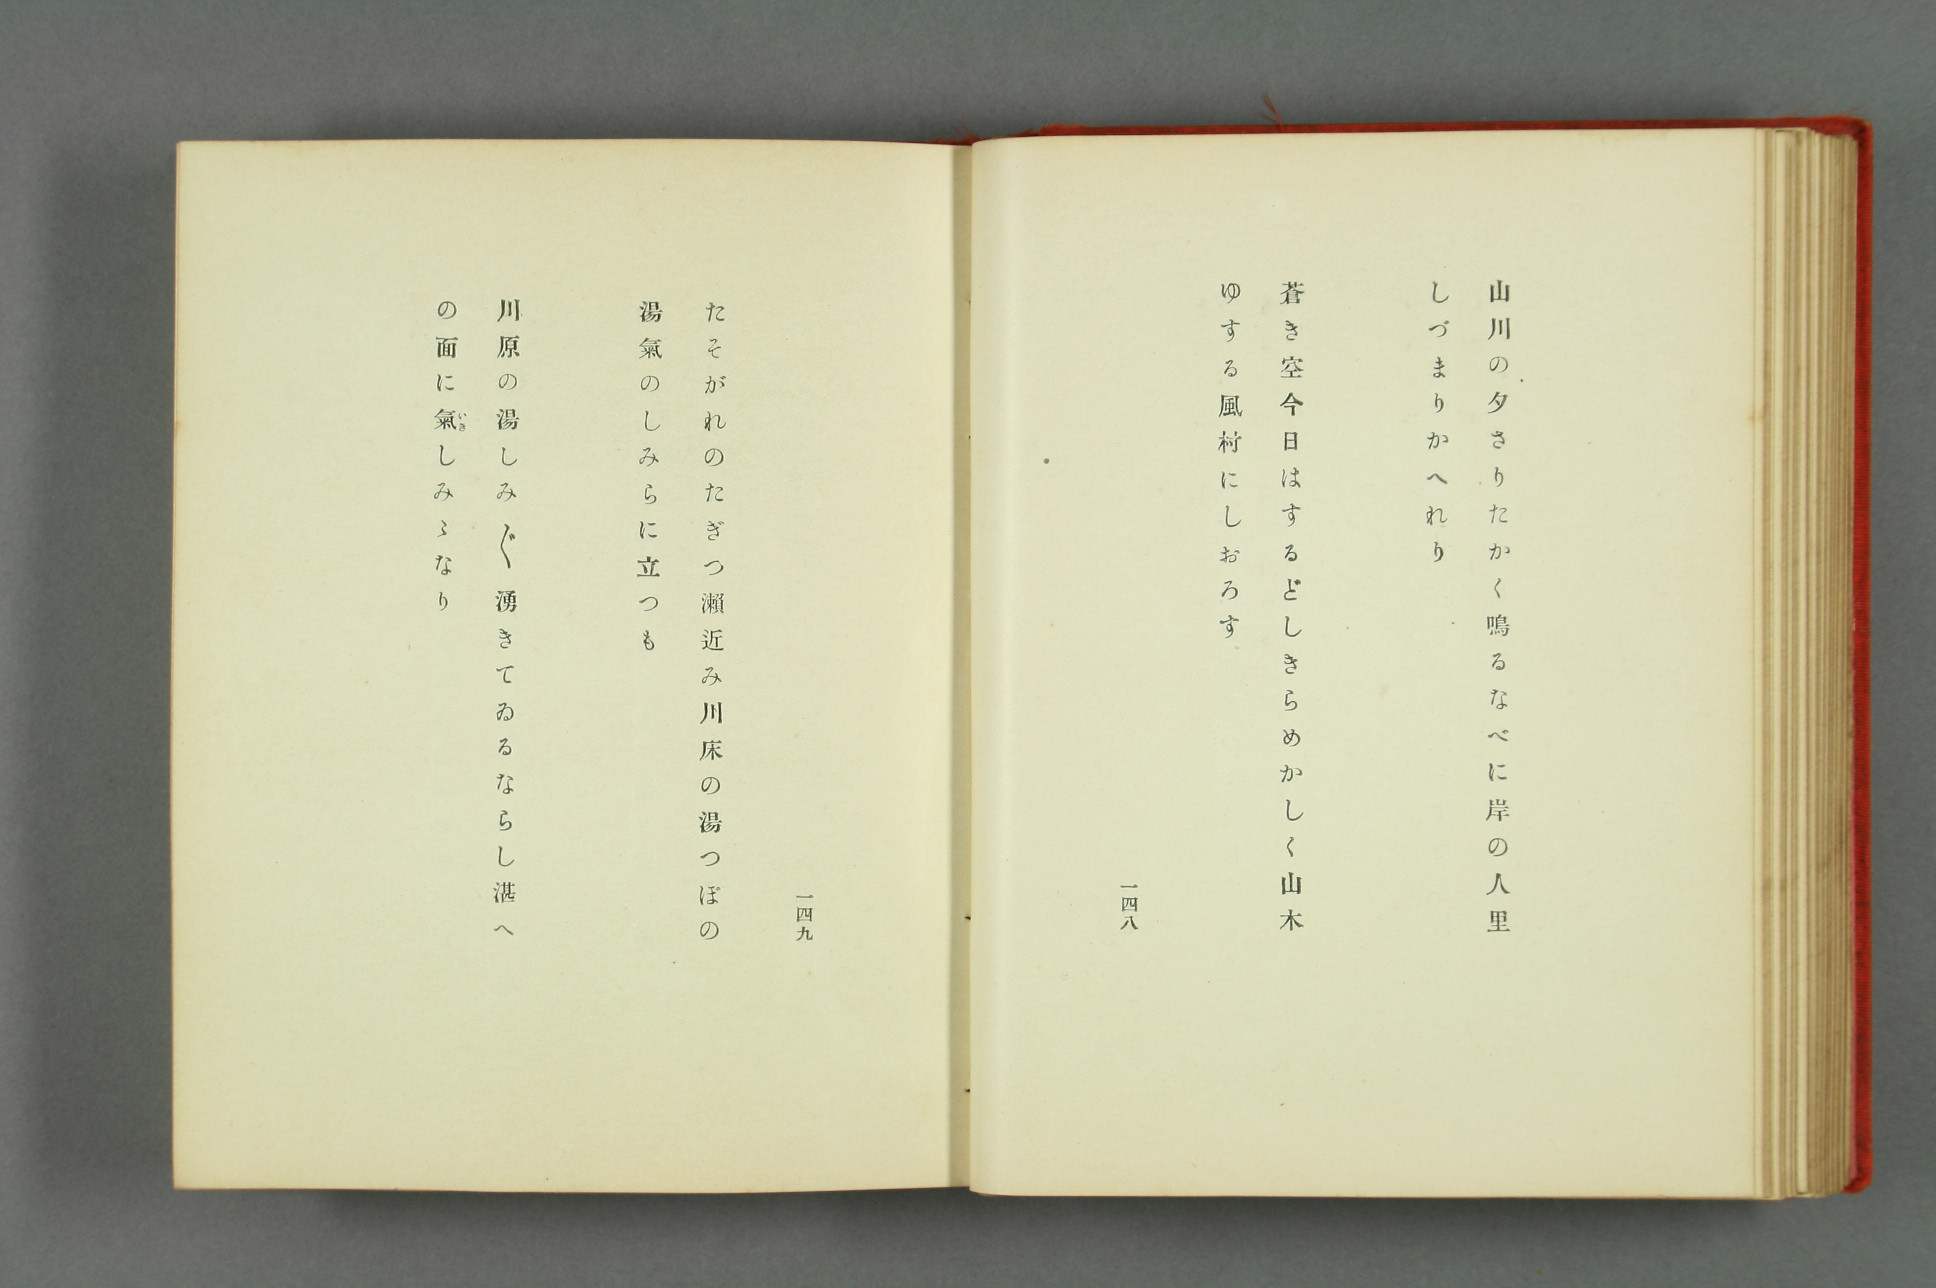 山川の夕さりたかく鳴るなべに岸の人里
しづまりかへれり
蒼き空今日はするどしきらめかしく山木
ゆする風村にしおろす
一四八
一四九
たそがれのたぎつ瀨近み川床の湯つぼの
湯氣のしみらに立つも
川原の湯しみ〲湧きてゐるならし湛へ
の面に氣いきしみゝなり